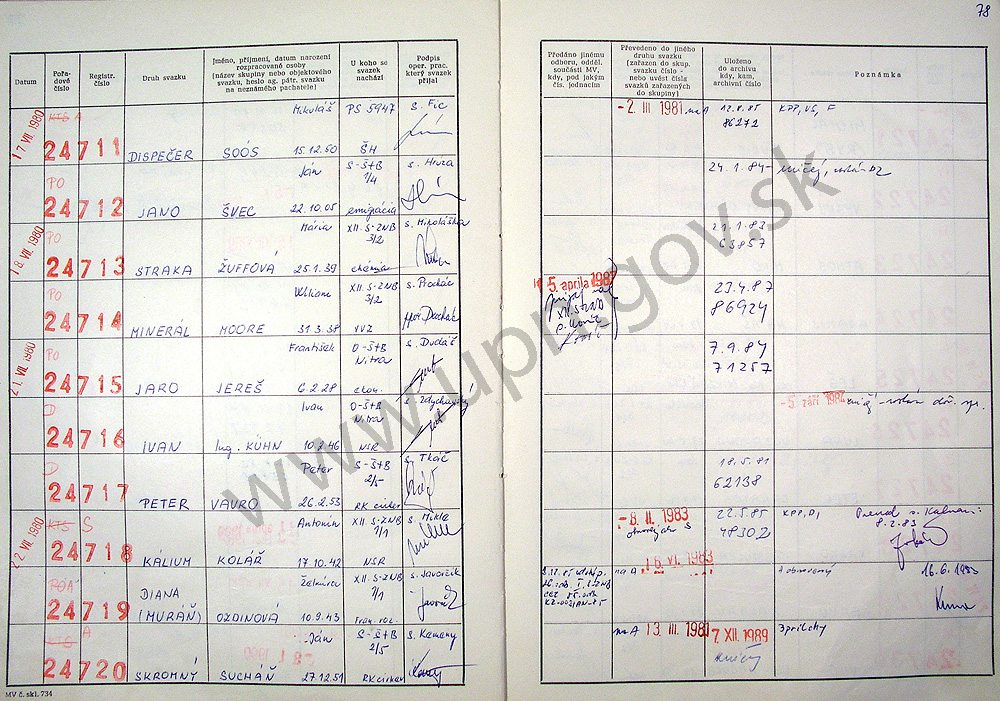 78
Datum
Pořadové číslo
Registr. číslo
Druh svazku
Jméno, příjmení, datum narození rozpracované osoby (název skupiny nebo objektového svazku, heslo ag. pátr. svazku na neznámého pachatele)
U koho se svazek nachází
Podpis oper. prac. který svazek přijal
Předáno jinému odboru, odděl. součásti MV, kdy, pod jakým čís. jednacím
Převedeno do jiného druhu svazku (zařazen do skup. svazku číslo - nebo uvést čísla svazků zařazených do skupiny)
Uloženo do archivu kdy, kam, archivní číslo
Poznámka
17 VII. 1980
KTS A
Mikuláš
PS 5947
s. Fic
-2. III 1981 na A
12.8.85
KPP, VS, F
24711
DISPEČER
SOÓS
15.12.50
ŠH
86272
PO
Ján
S-ŠtB
1/4
s. Hruza
24.1.84-
24712
JANO
ŠVEC
22.10.05
emigrácia
18. VII. 1980
PO
Mária
XII. S-ZNB
3/2
s. Mikoláška
21.1.83
24713
STRAKA
ŽUFFOVÁ
25.1.39
chémia
63857
PO
William
XII S-ZNB
3/2
5. apríla 1987
23.4.87
24714
MINERÁL
MOORE
31.3.38
VVZ
86924
21. VII. 1980
PO
František
O-ŠtB
Nitra
s. Dudáš
7.9.84
24715
JARO
JEREŠ
6.2.28
ekon.
71257
D
Ivan
O-ŠtB
Nitra
-5. září 1984
24716
IVAN
Ing. KÜHN
10.2.46
NSR
D
Peter
S-ŠtB
2/5
s. Tkáč
18.5.81
24717
PETER
VAVRO
26.2.53
RK cirkev
62138
22. VII. 1980
KTS S
Antonín
XII. S-ZNB
7/1
s. Mikla
-8. II. 1983
22.5.85
KPP, D,
8.2.83
24718
KÁLIUM
KOLÁŘ
17.10.42
NSR
48302
POA
DIANA
Želmíra
XII. S-ZNB
7/1
s. Javorčík
na A
16. VI. 1983
16.6.1983
24719
(MURÁŇ)
OZDINOVÁ
10.9.43
KTS A
Ján
S-ŠtB
2/5
s. Kameny
na A 13. III. 1981
7. XII. 1989
3 prílohy
24720
SKROMNÝ
SUCHÁŇ
27.12.51
RK cirkev
MV č. skl. 734
www.upn.gov.sk